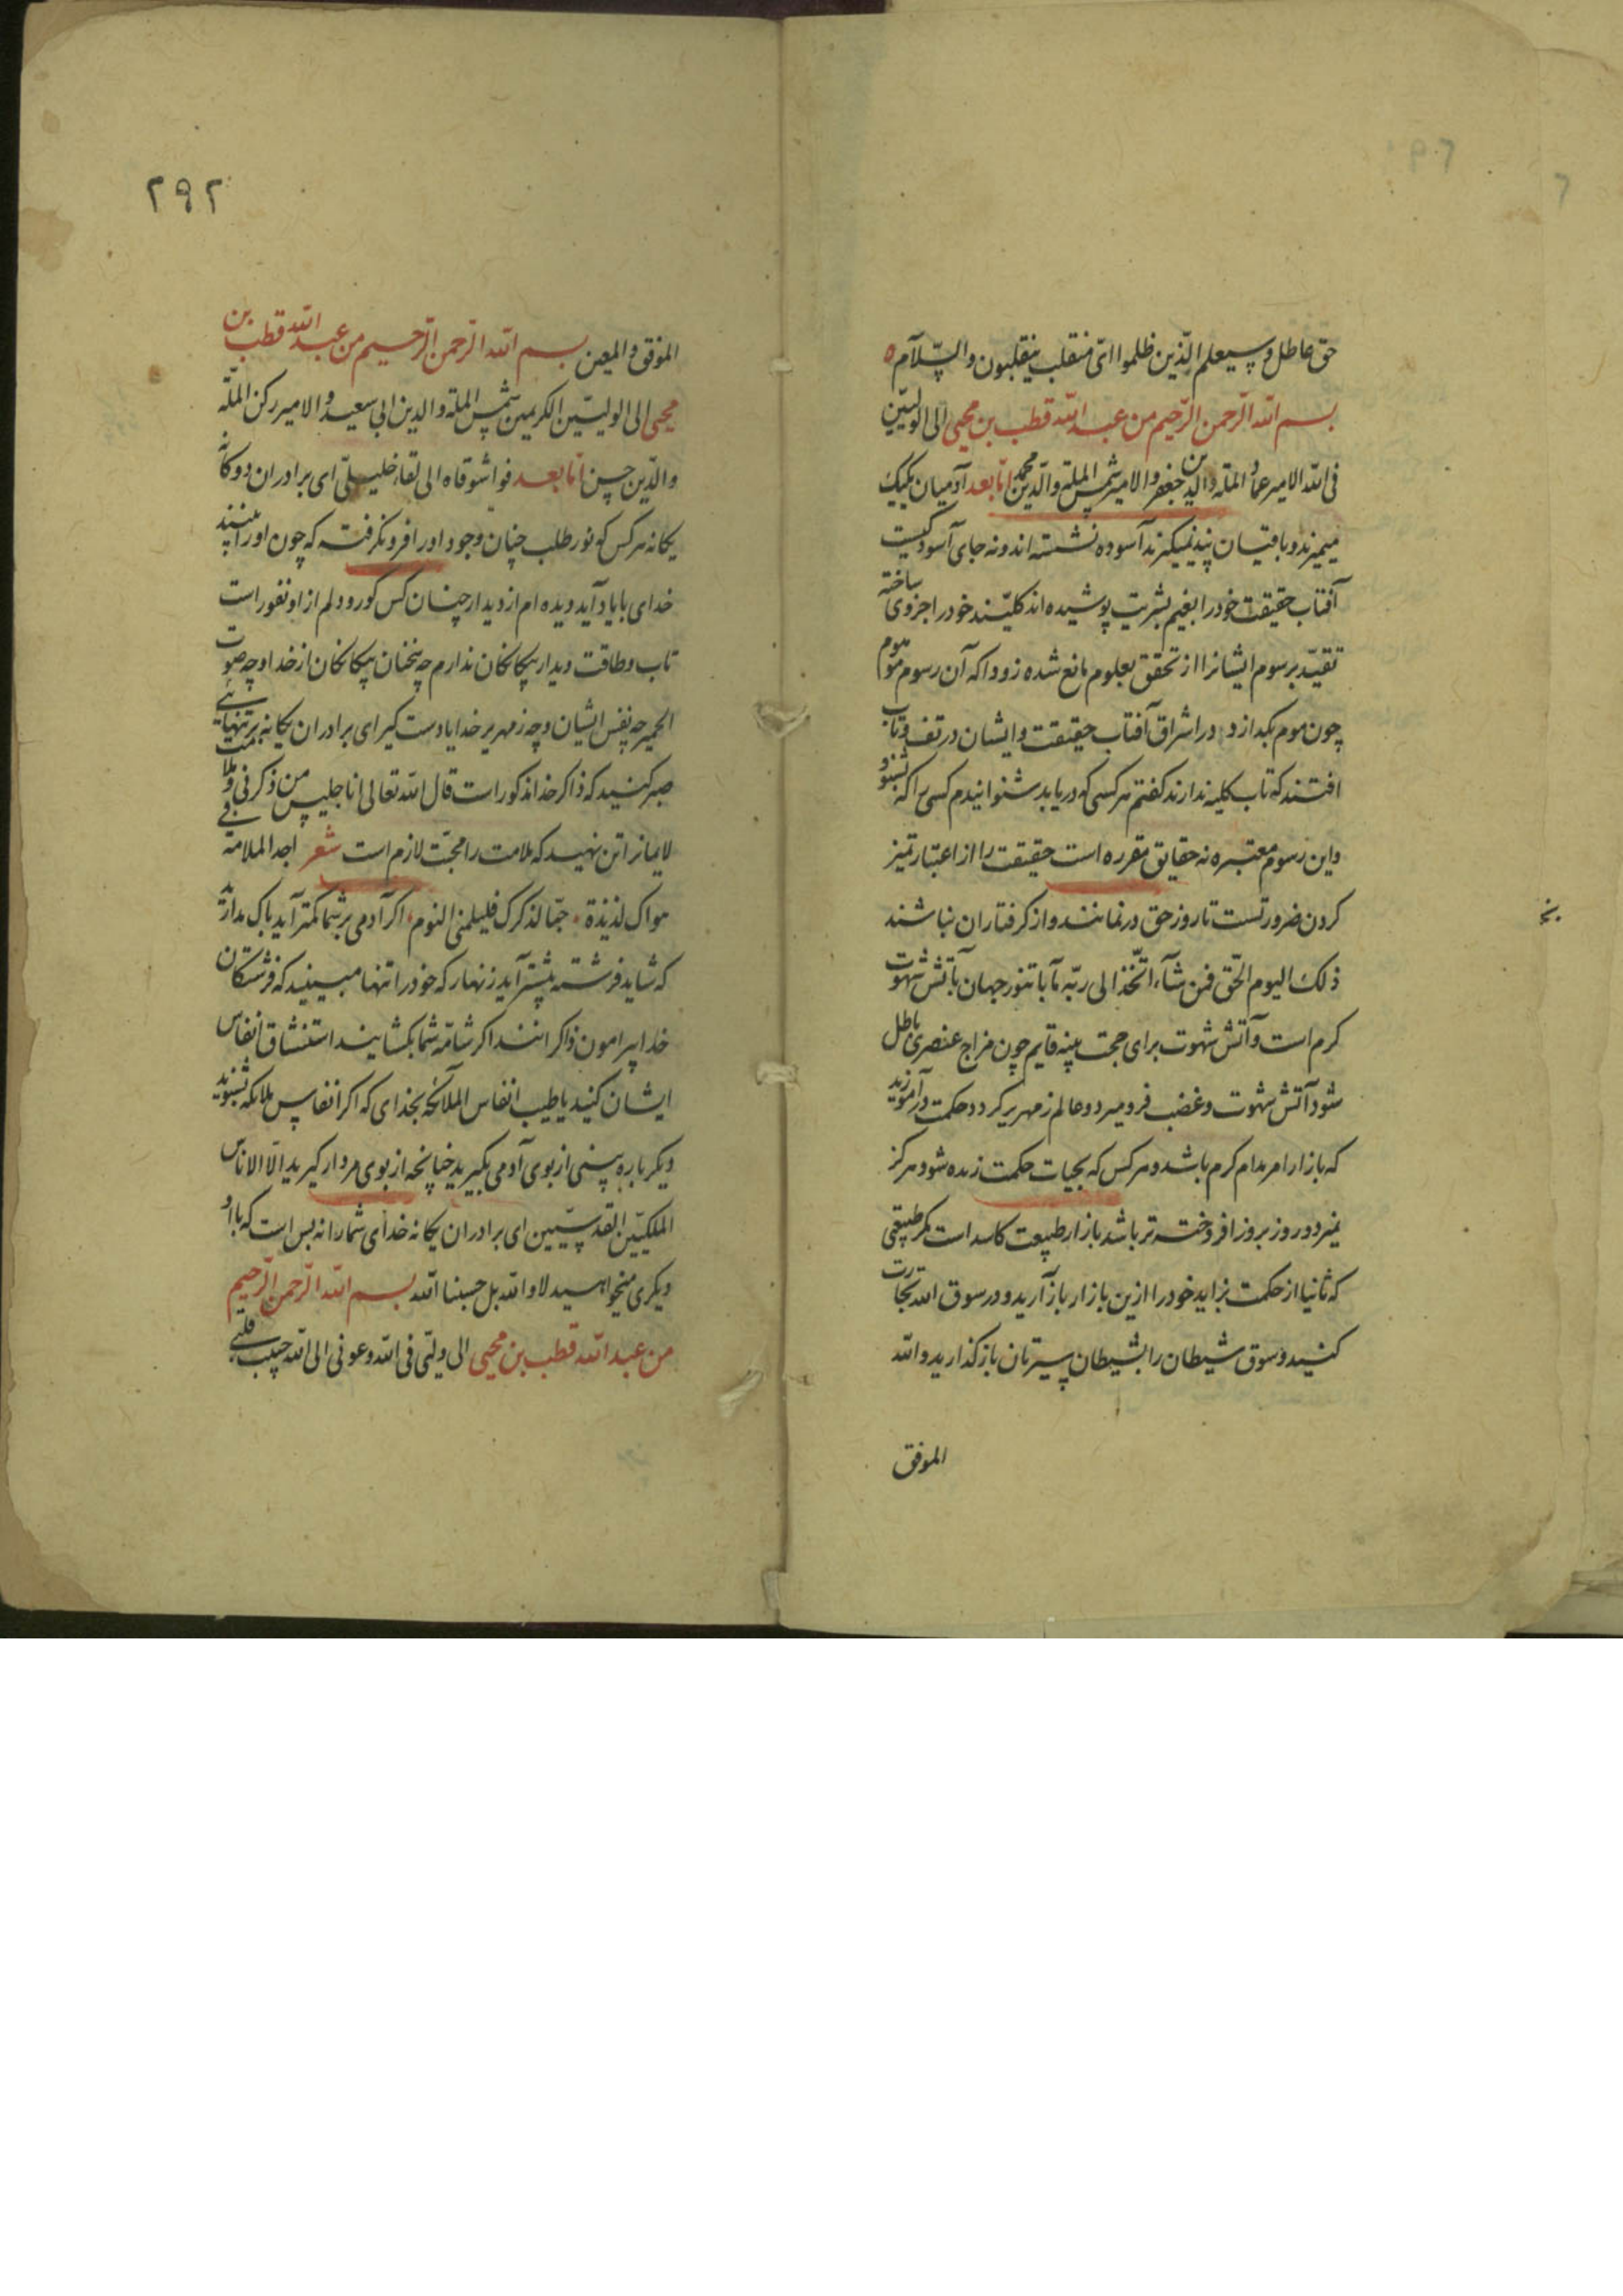 حق عاطل و سیعلم الذین ظلموا ای منقلب ینقلبون والسلام ه
بسم الله الرحمن الرحیم من عبد الله قطب بن محیی الی الولیین
فی الله الامیر عماد الملة والدین جعفر والامیر شمس الملة والدین محمد اما بعد آدمیان یکیک
میمیرند و باقیان پند نمیگیرند آسوده نشسته اند و نه جای آسودگیست
آفتاب حقیقت خود را بغیم بشریت پوشیده اند کلیتند خود را جزوی ساخته
تقید برسوم ایشانرا از تحقق بعلوم مانع شده زودا که آن رسوم موهوم
چون موم بگدازد در اشراق آفتاب حقیقت و ایشان در تف و تاب
افتند که تاب کلیه ندارند گفتم هر کسی که دریابد شنوانیدم کسی را که بشنود
و این رسوم معتبره نه حقایق مقرره است حقیقت را از اعتبار تمیز
کردن ضرورتست تا روز حق درنمانند و از گرفتاران نباشند
ذلک الیوم الحق فمن شاء اتخذ الی ربه مآبا تنور جهان بآتش شهوت
کرم است و آتش شهوت برای حجت بینه قایم چون مزاج عنصری باطل
شود آتش شهوت و غضب فرو میرد و عالم زمهریر کردد حکمت درآموزید
که بازار امر مدام کرم باشد و هر کس که بحیات حکمت زنده شود هرکز
نمیرد و روز بروز افروخته تر باشد بازار طبیعت کاسد است مکر طبیعتی
که ثانیا از حکمت بزاید خود را ازین بازار باز آرید و در سوق الله تجارت
کنید و سوق شیطان را بشیطان پرستان باز کذارید والله
الموفق
۲۹۲
الموفق والمعین بسم الله الرحمن الرحیم من عبد الله قطب بن
محیی الی الولیین الکریمین شمس الملة والدین ابی سعید والامیر رکن الملة
والدین حسن اما بعد فواشوقاه الی لقاء خلیلی ای برادران دوکانه
یکانه هر کس که نور طلب چنان وجود او را فرو نکرفته که چون او را ببینند
خدای با یاد آید دیده ام از دیدار چنان کس کور و دلم از او نفور است
تاب و طاقت دیدار بیکانکان ندارم چه سخنان بیکانکان از خدا و چه صوت
الحمیر چه نفس ایشان و چه زمهریر خدایا دست کیر ای برادران یکانه بر تنهایی
صبر کنید که ذاکر خدا مذکور است قال الله تعالی انا جلیس من ذکرنی و بملامت
لایمان تن نهید که ملامت را محبت لازم است شعر اجد الملامة فی
هواک لذیذة حبا لذکرک فلیلمنی اللوم اکر آدمی بر شما کمتر آید باک مدارید
که شاید فرشته بیشتر آید زنهار که خود را تنها مبینید که فرشتکان
خدا پیرامون ذاکرانند اکر شامه شما بکشایند استنشاق انفاس
ایشان کنید یا طیب انفاس الملائکه بخدای که اکر انفاس ملائکه بشنوید
دیکرباره بینی از بوی آدمی بکیرید چنانچه از بوی مردار کیرید الا الاناس
الملکیین القدسیین ای برادران یکانه خدای شما را نه بس است که با او
دیکری میخواهید لا والله بل حسبنا الله بسم الله الرحمن الرحیم
من عبد الله قطب بن محیی الی ولیی فی الله وعونی الی الله حبیب قلبی